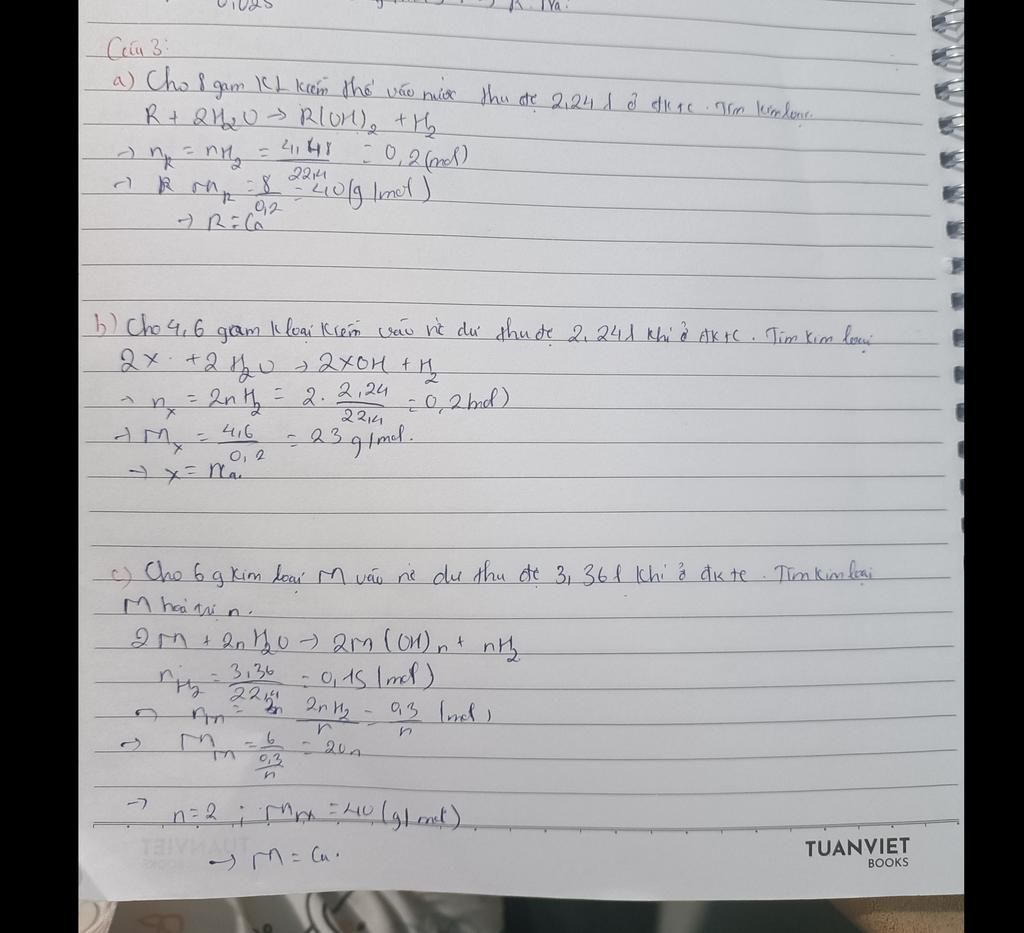 0,025
Câu 3:
a) Cho 8 gam KL kiềm thổ vào nước thu đc 2,24 l ở đktc. Tìm kim loại.
R + 2H₂O → R(OH)₂ + H₂
→ nR = nH₂ = 4,48/22,4 = 0,2 (mol)
→ R mR = 8/0,2 = 40 (g/mol)
→ R = Ca
b) Cho 4,6 gam K loại kiềm vào nc dư thu đc 2,24 l khí ở đktc. Tìm kim loại
2x + 2H₂O → 2xOH + H₂
→ nx = 2nH₂ = 2. 2,24/22,4 = 0,2 mol)
→ Mx = 4,6/0,2 = 23 g/mol.
→ x = Na.
c) Cho 6 g kim loại M vào nc dư thu đc 3,36 l khí ở đktc. Tìm kim loại
M hoá trị n.
2M + 2nH₂O → 2M(OH)n + nH₂
nH₂ = 3,36/22,4 = 0,15 (mol)
→ nM = 2nH₂/n = 0,3/n (mol)
→ MM = 6/(0,3/n) = 20n
→ n = 2 ; MM = 40 (g/mol)
→ M = Ca.
TUANVIET
BOOKS